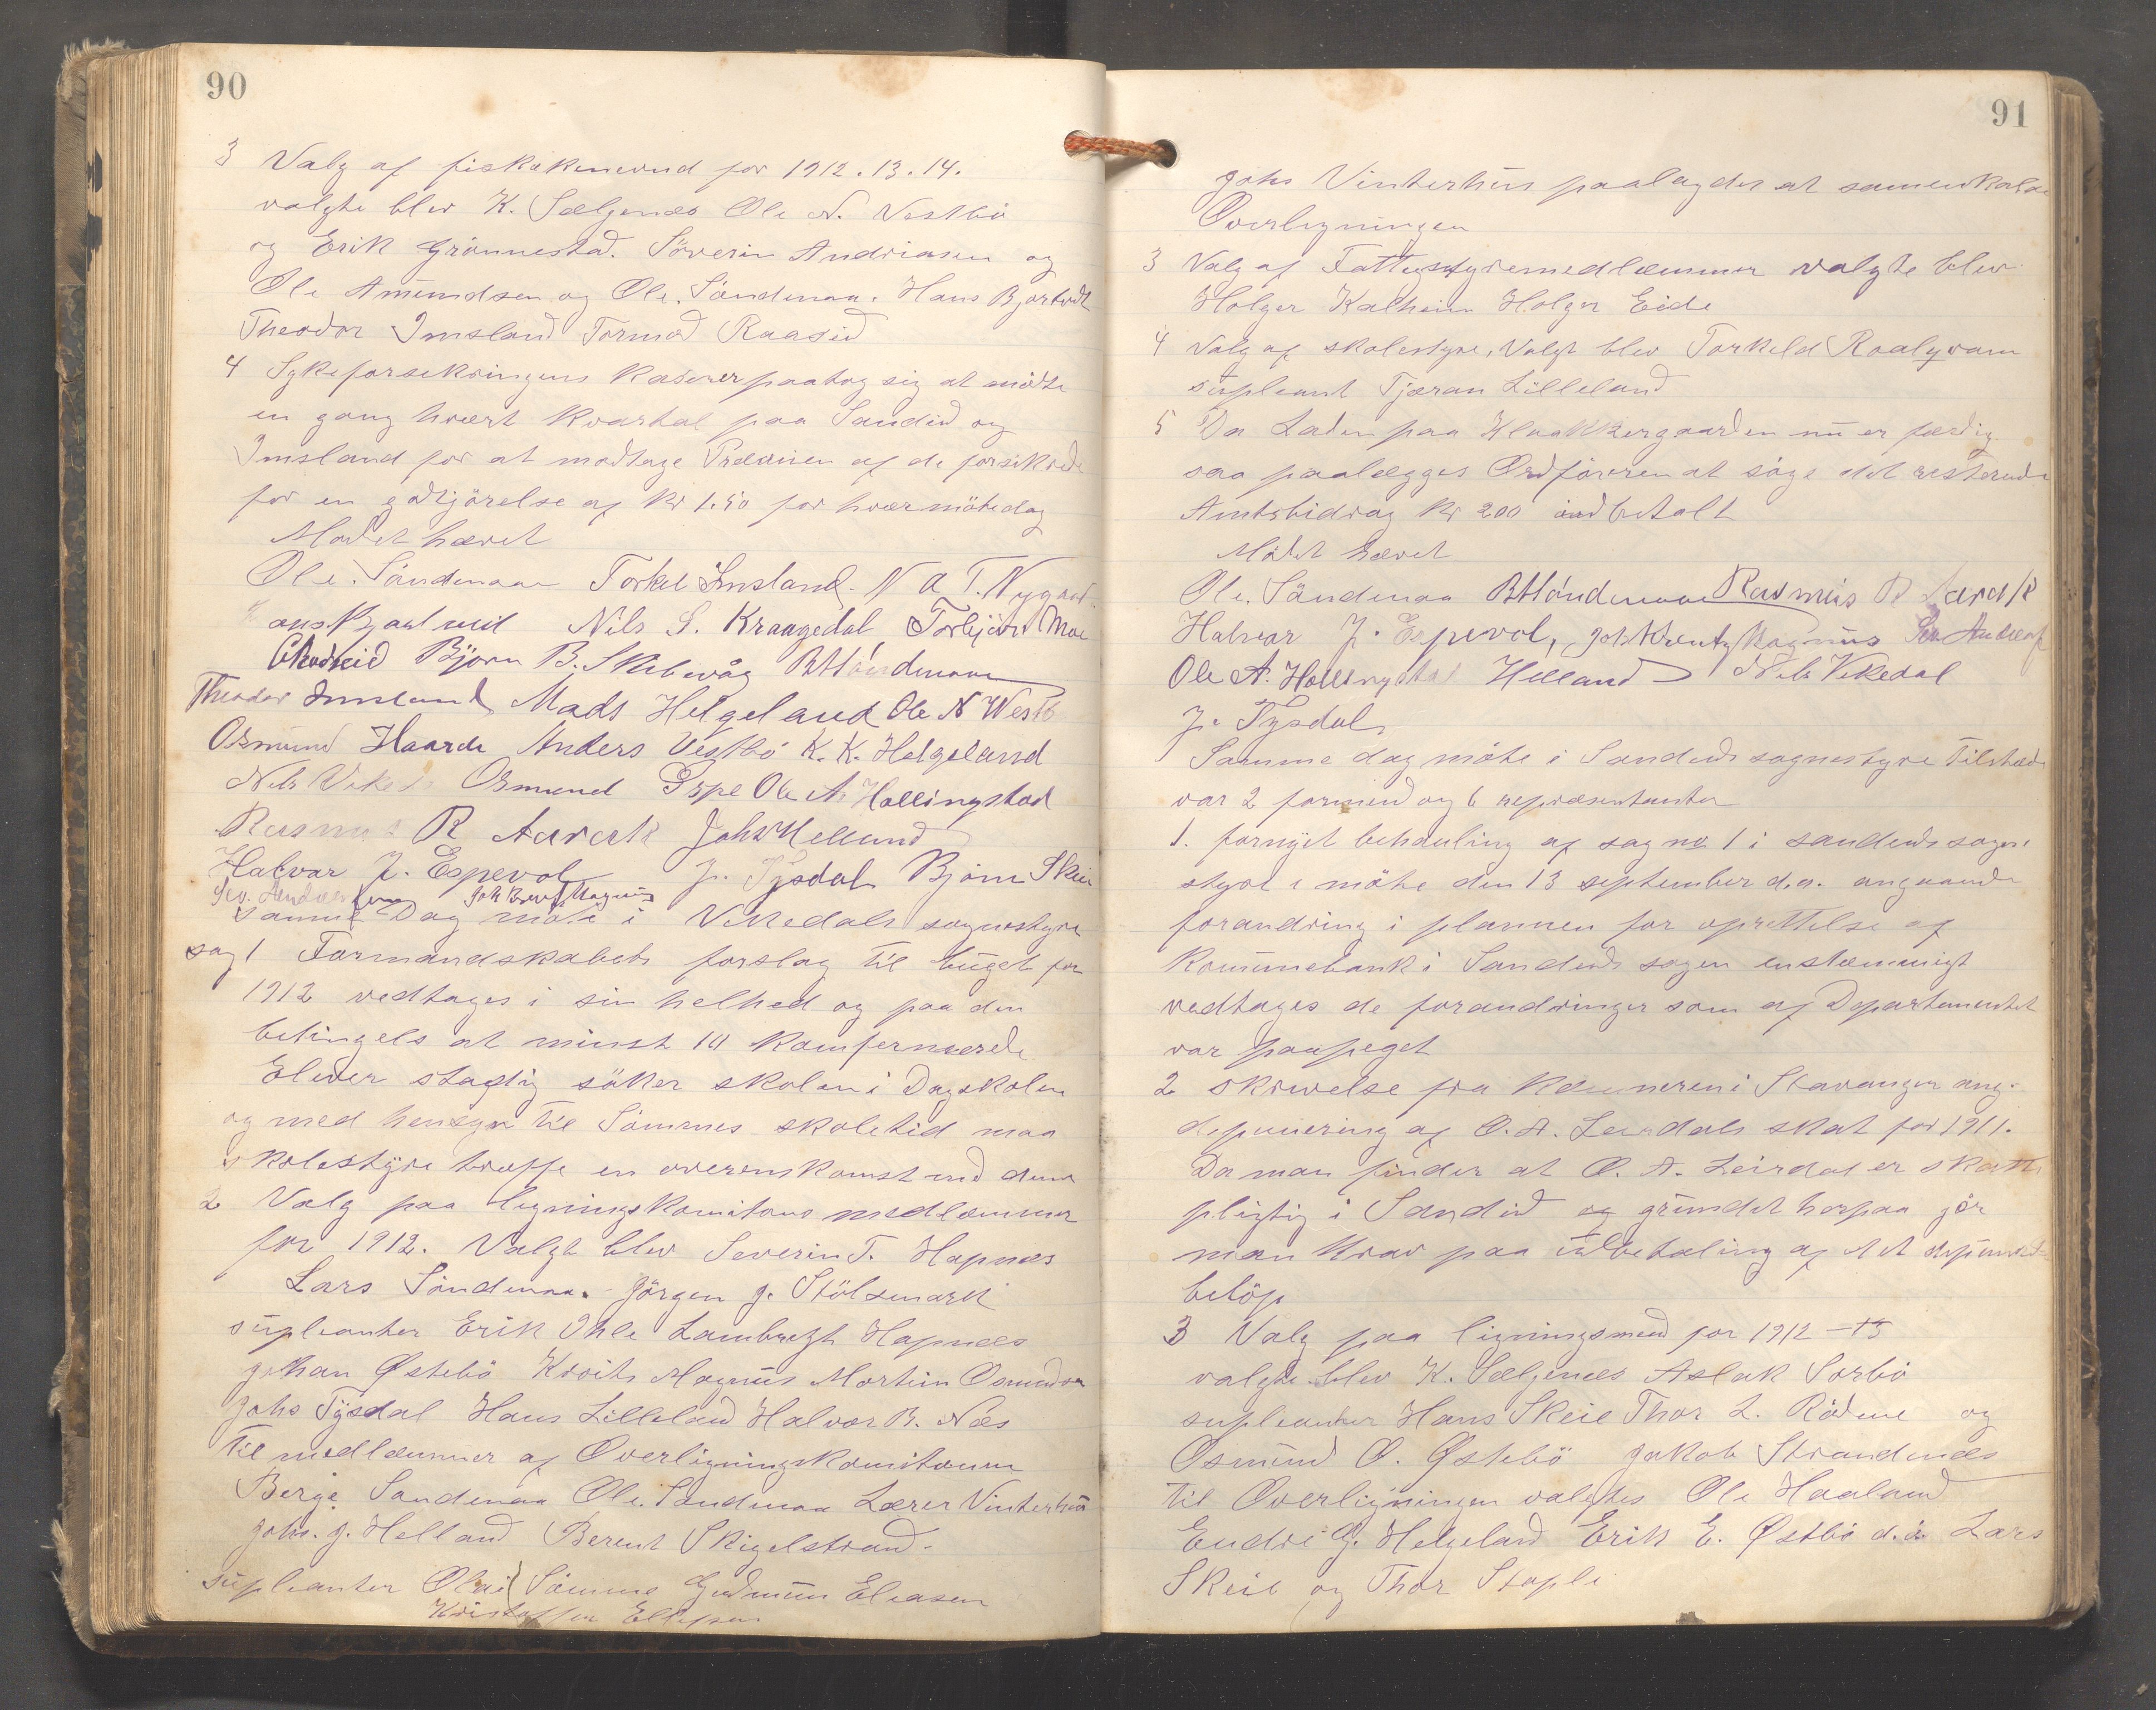 90
3 Valg af fiskakenevnd for 1912. 13. 14.
valgte blev K. Sælgenes Ole N. Vestbö
og Erik Grönnestad. Söverin Andriasen og
Ole Amundsen og Ole. Söndenaa. Hans Bjortvedt
Theodor Imsland Tormod Raaseid
4 Sykeforsekringens kaserer paatog sig at möte
en gang hvært kvartal paa Sandeid og
Imsland for at modtage Præmien af de forsikrede
for en godtjörelse af kr 1.50 for hvær mötedag
Mödet hævet
Ole. Söndenaa Torkel Imsland. N A T. Nygaard
Hans Bjortveit Nils S. Kraagedal Torbjörn Moe
Björn B. Skibevåg B Höndenaa
Theodor Imsland Mads Helgeland Ole N Westb
Osmund Haarde Anders Vestbö K. K. Helgeland
Nils Vikedal Osmund Espe Ole A. Hollingstad
Rasmus R Aarak Johs Helland
Halvar J. Espevol J. Tysdal Björn Skeie
Sev. Andreassen Joh Kreutz Magnus
Samme Dag möte i Vikedals sognestyre
sag 1 Formandskabets forslag til buget for
1912 vedtages i sin helhed og paa den
betingels at minst 10 komfermerede
Elever stadig söker skolen i Dagskolen
og med hensyn til Sömmes skoletid maa
skolestyre træffe en overenskomst med dem
2 Valg paa ligningskomitens medlemmer
for 1912. Valgt blev Severin T. Hapnes
Lars Söndenaa. Jörgen J. Stölsmark
supleanter Erik Ohle Lambregt Hapnes
Johan Østebö Kroits Magnus Martin Osmundsen
Johs Tysdal Hans Lilleland Halvor B. Næs
Til medlemmer af Overligningskomiteen
Berge Sandenaa Ole. Söndenaa Lærer Vinterhus
Johs. J. Helland Berent Skigelstrand.
supleanter Olai Sömme Gudmun Eleasen
Kristoffer Ellefsen
91
Johs Vinterhus paalagdes at samenkalde
Overligningen
3 Valg af Fattigstyremedlemmer valgte blev
Holger Kalheim Holger Eide
4 Valg af skolestyre, Valgt blev Torkeld Roalkvam
supleant Tjæran Lilleland
5 Da Laden paa Klokkergaarden nu er færdig
saa paalægges Ordföreren at söge det resterende
Amtsbidrag kr 200 indbetalt
Mödet hævet
Ole. Söndenaa B Höndenaa Rasmus R Aarak
Halvar J. Espevol, Joh Kreutz Magnus Sev Andreas
Ole A. Hollingstad Helland Nils Vikedal
J. Tysdal
Samme dag möte i Sandeids sognestyre Tilstæde
var 2 formend og 6 repræsentanter
1. fornyet behanling af sag no 1 i sandeids sogne
styre i möte den 13 september d.a. angaaende
forandring i plannen for oprettelse af
Kommunebank i Sandeids sogen enstemmigt
vedtages de forandringer som af Departementet
var paapeget
2 skrivelse fra Kæmneren i Stavanger ang.
depunering af O. A. Leirdals skat for 1911.
Da man finder at O. A. Leirdal er skatte
pligtig i Sandeid og grundet herpaa gör
man krav paa indbetaling af det depunerede
belöp
3 Valg paa ligningsmend for 1912 – 13
valgte blev K. Sælgenes Aslak Sorbö
supleanter Hans Skeie Thor L. Rödne og
Osmund O. Østebö Jakob Strandenes
Til Overligningen valgtes Ole Haaland
Endre G. Helgeland Erik E. Østbö d.ä. Lars
Skeie og Thor Stople